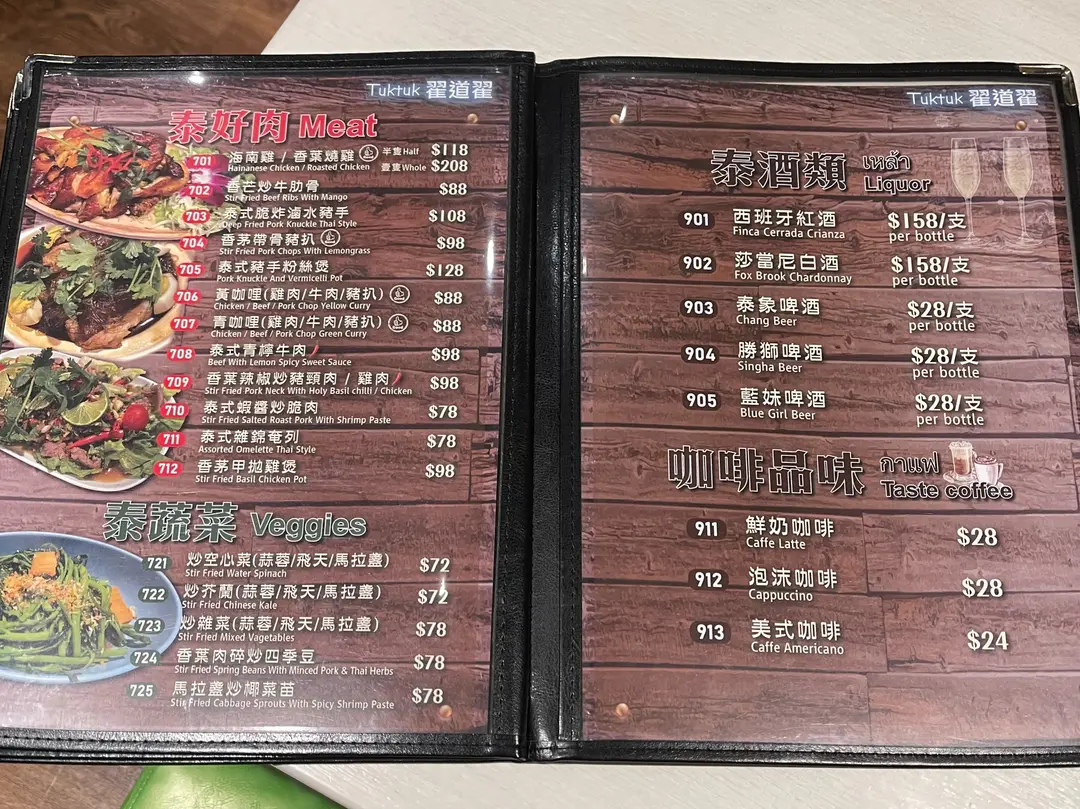 Tuktuk 翟道翟
泰好肉 Meat
701 海南雞 / 香葉燒雞 半隻Half $118
Hainanese Chicken / Roasted Chicken 壹隻Whole $208
702 香芒炒牛肋骨 $88
Stir Fried Beef Ribs With Mango
703 泰式脆炸滷水豬手 $108
Deep Fried Pork Knuckle Thai Style
704 香茅帶骨豬扒 $98
Stir Fried Pork Chops With Lemongrass
705 泰式豬手粉絲煲 $128
Pork Knuckle And Vermicelli Pot
706 黃咖喱(雞肉/牛肉/豬扒) $88
Chicken / Beef / Pork Chop Yellow Curry
707 青咖喱(雞肉/牛肉/豬扒) $88
Chicken / Beef / Pork Chop Green Curry
708 泰式青檸牛肉 $98
Beef With Lemon Spicy Sweet Sauce
709 香葉辣椒炒豬頸肉 / 雞肉 $98
Stir Fried Pork Neck With Holy Basil chilli / Chicken
710 泰式蝦醬炒脆肉 $78
Stir Fried Salted Roast Pork With Shrimp Paste
711 泰式雜錦奄列 $78
Assorted Omelette Thai Style
712 香茅甲抛雞煲 $98
Stir Fried Basil Chicken Pot
泰蔬菜 Veggies
721 炒空心菜(蒜蓉/飛天/馬拉盞) $72
Stir Fried Water Spinach
722 炒芥蘭(蒜蓉/飛天/馬拉盞) $72
Stir Fried Chinese Kale
723 炒雜菜(蒜蓉/飛天/馬拉盞) $78
Stir Fried Mixed Vagetables
724 香葉肉碎炒四季豆 $78
Stir Fried Spring Beans With Minced Pork & Thai Herbs
725 馬拉盞炒椰菜苗 $78
Stir Fried Cabbage Sprouts With Spicy Shrimp Paste
Tuktuk 翟道翟
泰酒類 เหล้า
Liquor
901 西班牙紅酒 $158/支
Finca Cerrada Crianza per bottle
902 莎當尼白酒 $158/支
Fox Brook Chardonnay per bottle
903 泰象啤酒 $28/支
Chang Beer per bottle
904 勝獅啤酒 $28/支
Singha Beer per bottle
905 藍妹啤酒 $28/支
Blue Girl Beer per bottle
咖啡品味 กาแฟ
Taste coffee
911 鮮奶咖啡 $28
Caffe Latte
912 泡沫咖啡 $28
Cappuccino
913 美式咖啡 $24
Caffe Americano